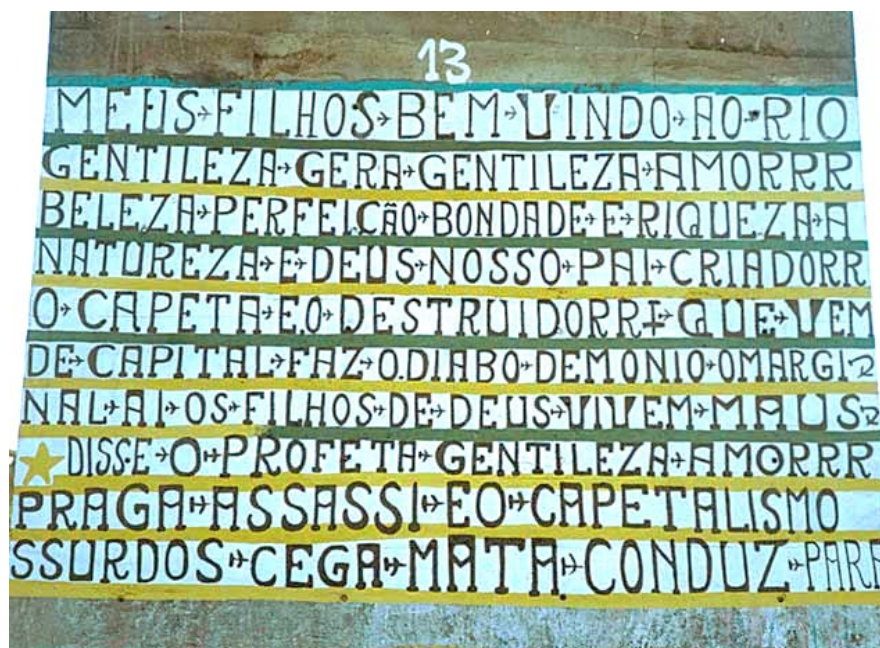 13
MEUS FILHOS BEM VINDO AO RIO
GENTILEZA GERA GENTILEZA AMORRR
BELEZA PERFEIÇÃO BONDADE E RIQUEZA A
NATUREZA E DEUS NOSSO PAI CRIADORR
O CAPETA E.O DESTRUIDORR QUE VEM
DE CAPITAL FAZ O.DIABO DEMONIO OMARGI
NAL AI OS FILHOS DE DEUS VIVEM MAUS
DISSE O PROFETA GENTILEZA AMORRR
PRAGA ASSASSI EO CAPETALISMO
SSURDOS CEGA MATA CONDUZ PARA